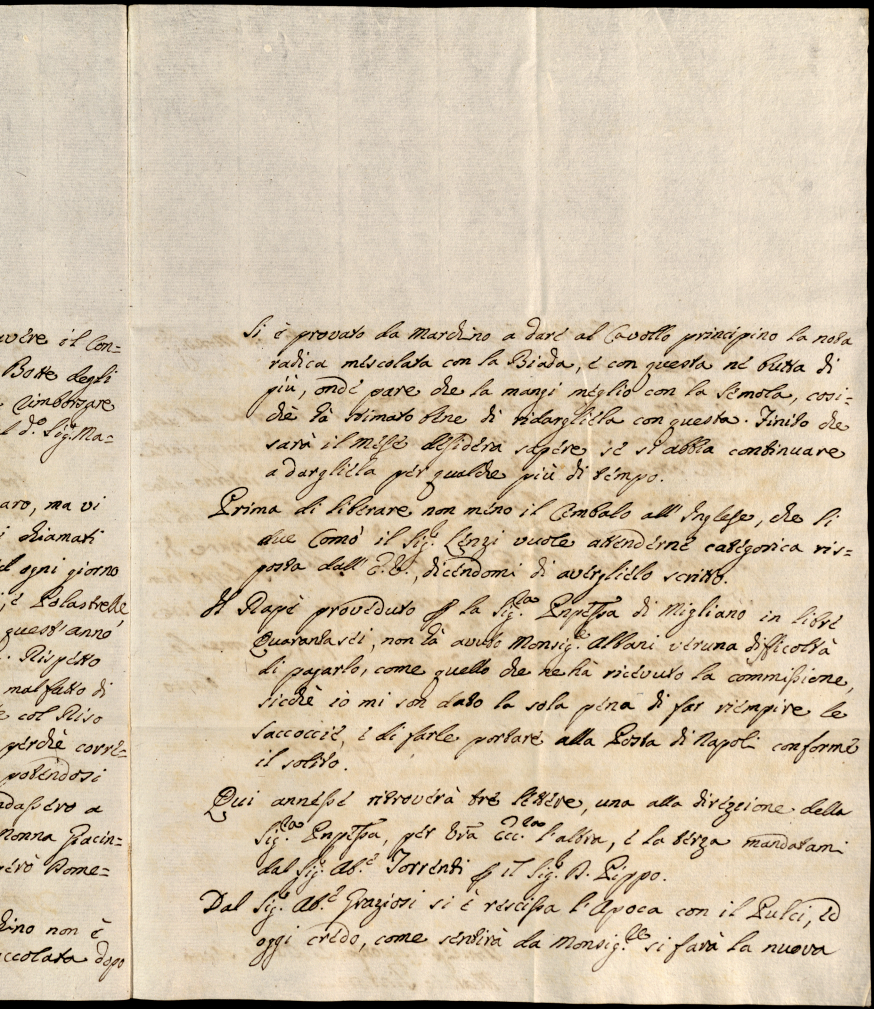 uvere il Con=
Botte degli
rimborsare
l d.º Sig.r Ma=
aro, ma vi
i chiamati
ogni giorno
, e Polastrelle,
quest'anno
. Rispetto
mal fatto di
e col Riso
perchè corre=
potendosi
ndassero a
Nonna Giacin=
però Dome=
chino non è
ccolata dopo
Si è provato da Marchino a dare al Cavallo principino la nota
radica mescolata con la Biada, e con questa ne butta di
più, onde pare che la mangi meglio con la Semola, cosi=
chè hà stimato bene di ridargliela con questa. Finito che
sarà il mese desidera sapere se si abbia continuare
a dargliela per qualche più di tempo.
Prima di liberare non meno il Cembalo all'Inglese, che li
due Comò il Sig.r Lenzi vuole attenderne categorica ris=
posta dall'E.V., dicendomi di averglielo scritto.
Il Rapè proveduto p la Sig.ra Pnpessa di Migliano in libre
Quarantasei, non hà avuto Monsig.e Albani veruna difficoltà
di pagarlo, come quello che ne hà ricevuto la commissione,
sicchè io mi son dato la sola pena di far riempire le
saccoccie, e di farle portare alla Posta di Napoli conforme
il solito.
Qui annesse ritroverà tre lettere, una alla direzzione della
Sig.ra Pnpessa, per Vra Ecc.za l'altra, e la terza mandatami
dal Sig.r Ab.e Torrenti p il Sig.r D. Pippo.
Dal Sig.r Ab.e Graziosi si è rescissa l'Apoca con il Pulci, ed
oggi credo, come sentirà da Monsig.re si farà la nuova